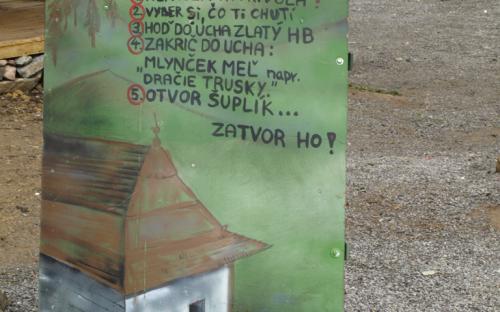 2. VYBER SI, ČO TI CHUTÍ
3. HOĎ DO UCHA ZLATÝ HB
4. ZAKRIČ DO UCHA:
„MLYNČEK MEĽ napr.
DRAČIE TRUSKY."
5. OTVOR ŠUPLÍK...
ZATVOR HO!